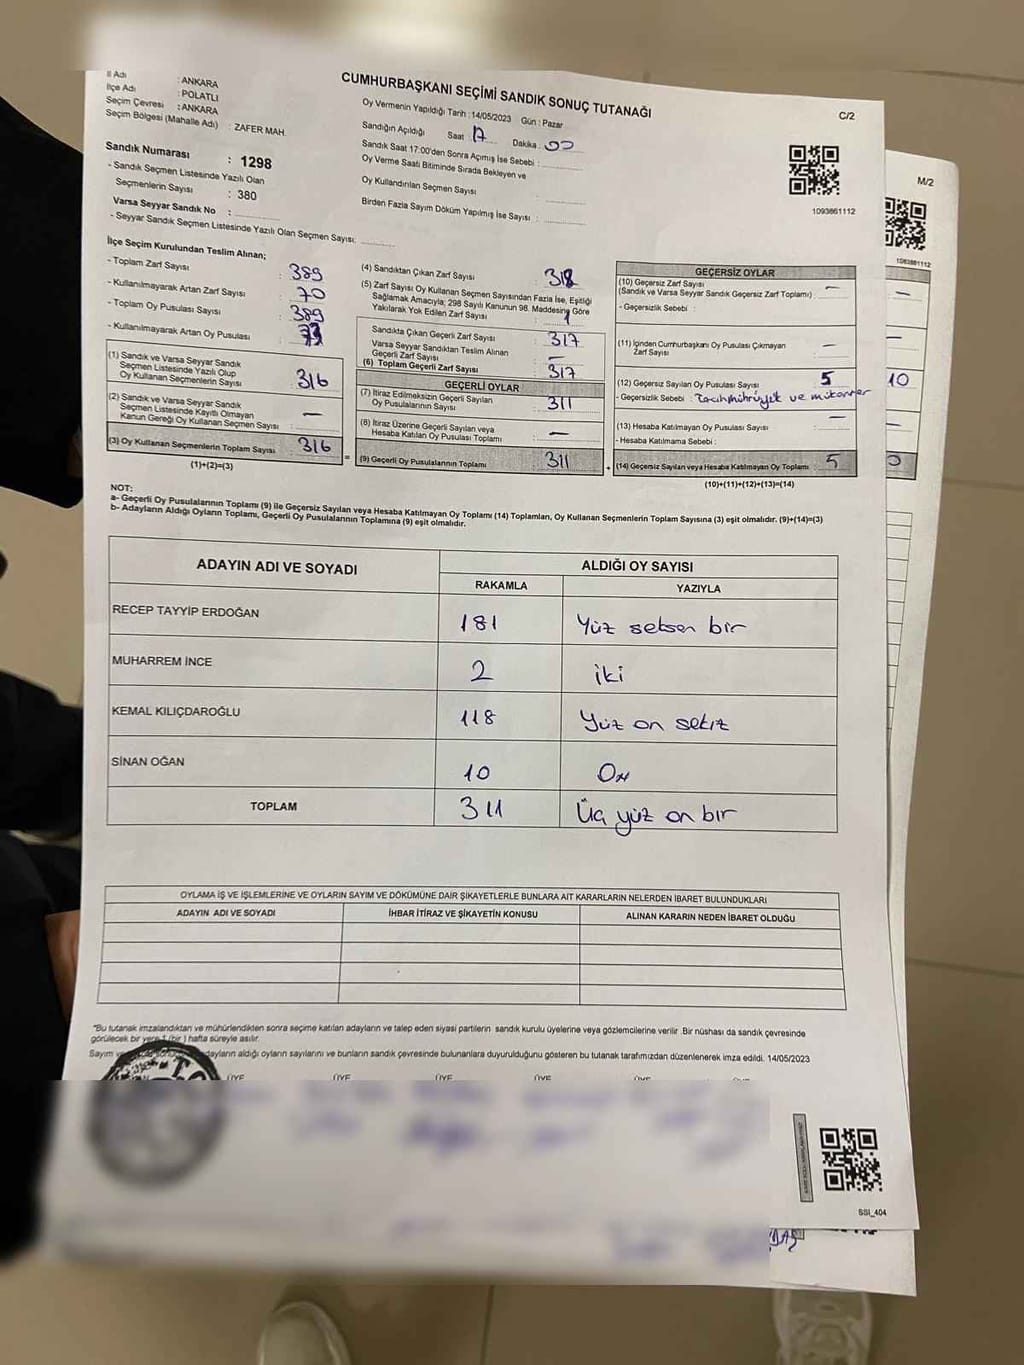 CUMHURBAŞKANI SEÇİMİ SANDIK SONUÇ TUTANAĞI
C/2
İl Adı : ANKARA
İlçe Adı : POLATLI
Seçim Çevresi : ANKARA
Seçim Bölgesi (Mahalle Adı) : ZAFER MAH.
Sandık Numarası : 1298
- Sandık Seçmen Listesinde Yazılı Olan
Seçmenlerin Sayısı : 380
Varsa Seyyar Sandık No :
- Seyyar Sandık Seçmen Listesinde Yazılı Olan Seçmen Sayısı:
Oy Vermenin Yapıldığı Tarih : 14/05/2023 Gün : Pazar
Sandığın Açıldığı Saat : 17 Dakika : 00
Sandık Saat 17:00'den Sonra Açımış İse Sebebi :
Oy Verme Saati Bitiminde Sırada Bekleyen ve
Oy Kullandırılan Seçmen Sayısı
Birden Fazla Sayım Döküm Yapılmış İse Sayısı :
1093861112
M/2
1093861112
İlçe Seçim Kurulundan Teslim Alınan;
- Toplam Zarf Sayısı : 389
- Kullanılmayarak Artan Zarf Sayısı : 70
- Toplam Oy Pusulası Sayısı : 389
- Kullanılmayarak Artan Oy Pusulası :
(1) Sandık ve Varsa Seyyar Sandık
Seçmen Listesinde Yazılı Olup
Oy Kullanan Seçmenlerin Sayısı : 316
(2) Sandık ve Varsa Seyyar Sandık
Seçmen Listesinde Kayıtlı Olmayan
Kanun Gereği Oy Kullanan Seçmen Sayısı : —
(3) Oy Kullanan Seçmenlerin Toplam Sayısı : 316
(1)+(2)=(3)
(4) Sandıktan Çıkan Zarf Sayısı : 318
(5) Zarf Sayısı Oy Kullanan Seçmen Sayısından Fazla İse, Eşitliği
Sağlamak Amacıyla; 298 Sayılı Kanunun 98. Maddesine Göre
Yakılarak Yok Edilen Zarf Sayısı : 1
Sandıkta Çıkan Geçerli Zarf Sayısı : 317
Varsa Seyyar Sandıktan Teslim Alınan
Geçerli Zarf Sayısı : —
(6) Toplam Geçerli Zarf Sayısı : 317
GEÇERLİ OYLAR
(7) İtiraz Edilmeksizin Geçerli Sayılan
Oy Pusulalarının Sayısı : 311
(8) İtiraz Üzerine Geçerli Sayılan veya
Hesaba Katılan Oy Pusulası Toplamı : —
(9) Geçerli Oy Pusulalarının Toplamı : 311
GEÇERSİZ OYLAR
(10) Geçersiz Zarf Sayısı : —
(Sandık ve Varsa Seyyar Sandık Geçersiz Zarf Toplamı)
- Geçersizlik Sebebi :
(11) İçinden Cumhurbaşkanı Oy Pusulası Çıkmayan
Zarf Sayısı : —
(12) Geçersiz Sayılan Oy Pusulası Sayısı : 5
- Geçersizlik Sebebi : ve mükerrer
(13) Hesaba Katılmayan Oy Pusulası Sayısı : —
- Hesaba Katılmama Sebebi :
(14) Geçersiz Sayılan veya Hesaba Katılmayan Oy Toplamı : 5
(10)+(11)+(12)+(13)=(14)
10
NOT:
a- Geçerli Oy Pusulalarının Toplamı (9) ile Geçersiz Sayılan veya Hesaba Katılmayan Oy Toplamı (14) Toplamları, Oy Kullanan Seçmenlerin Toplam Sayısına (3) eşit olmalıdır. (9)+(14)=(3)
b- Adayların Aldığı Oyların Toplamı, Geçerli Oy Pusulalarının Toplamına (9) eşit olmalıdır.
ADAYIN ADI VE SOYADI ALDIĞI OY SAYISI
RAKAMLA YAZIYLA
RECEP TAYYİP ERDOĞAN 181 Yüz seksen bir
MUHARREM İNCE 2 iki
KEMAL KILIÇDAROĞLU 118 Yüz on sekiz
SİNAN OĞAN 10 On
TOPLAM 311 Üç yüz on bir
OYLAMA İŞ VE İŞLEMLERİNE VE OYLARIN SAYIM VE DÖKÜMÜNE DAİR ŞİKAYETLERLE BUNLARA AİT KARARLARIN NELERDEN İBARET BULUNDUKLARI
ADAYIN ADI VE SOYADI İHBAR İTİRAZ VE ŞİKAYETİN KONUSU ALINAN KARARIN NEDEN İBARET OLDUĞU
"Bu tutanak imzalandıktan ve mühürlendikten sonra seçime katılan adayların ve talep eden siyasi partilerin sandık kurulu üyelerine veya gözlemcilerine verilir .Bir nüshası da sandık çevresinde
görülecek bir yere 1 (bir ) hafta süreyle asılır.
Sayım ve adayların aldığı oyların sayılarını ve bunların sandık çevresinde bulunanlara duyurulduğunu gösteren bu tutanak tarafımızdan düzenlenerek imza edildi. 14/05/2023
ÜYE ÜYE ÜYE ÜYE ÜYE
SSI_404